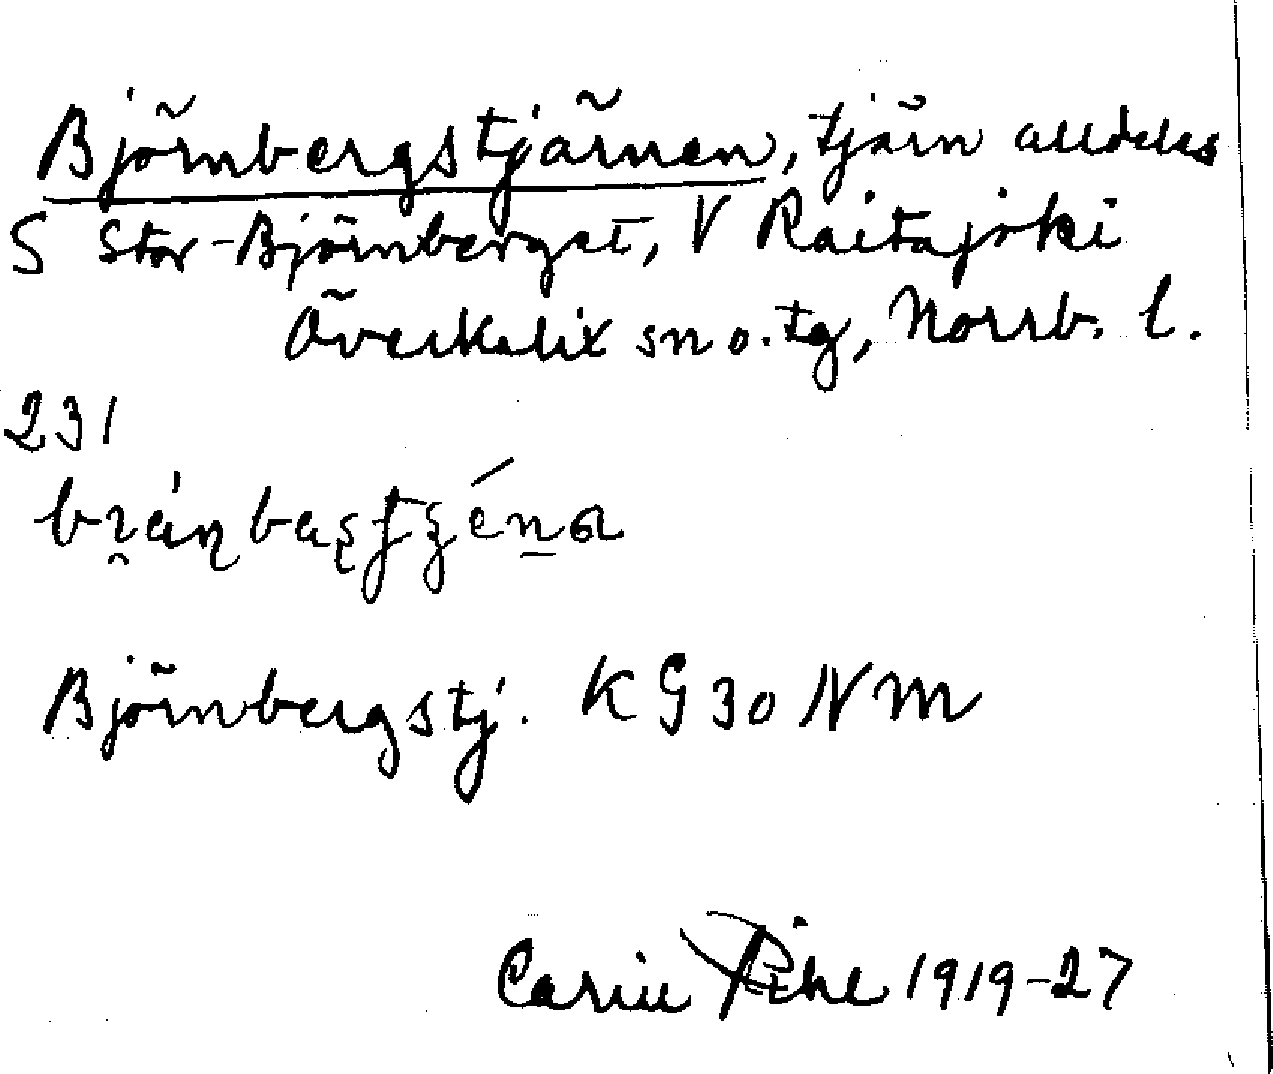 Björnbergstjärnen, tjärn alldeles
S Stor-Björnberget, V Raitajoki
Överkalix sn o. tg, Norrb. l.
231
Björnbergstj. K G 30 N M
Carin Pihl 1919-27